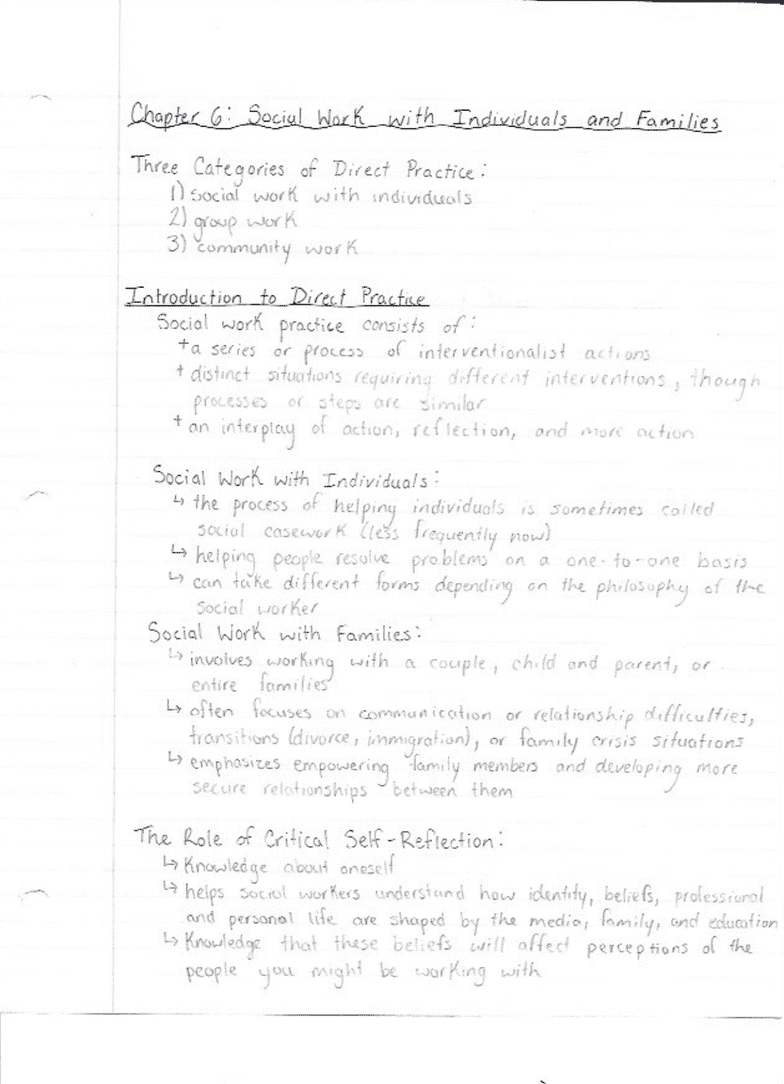 Chapter 6: Social Work with Individuals and Families
Three Categories of Direct Practice:
1) social work with individuals
2) group work
3) community work
Introduction to Direct Practice
Social work practice consists of:
+ a series or process of interventionalist actions
+ distinct situations requiring different interventions, though
processes or steps are similar
+ an interplay of action, reflection, and more action
Social Work with Individuals:
↳ the process of helping individuals is sometimes called
social casework (less frequently now)
↳ helping people resolve problems on a one-to-one basis
↳ can take different forms depending on the philosophy of the
social worker
Social Work with Families:
↳ involves working with a couple, child and parent, or
entire families
↳ often focuses on communication or relationship difficulties,
transitions (divorce, immigration), or family crisis situations
↳ emphasizes empowering family members and developing more
secure relationships between them
The Role of Critical Self-Reflection:
↳ Knowledge about oneself
↳ helps social workers understand how identity, beliefs, professional
and personal life are shaped by the media, family, and education
↳ Knowledge that these beliefs will affect perceptions of the
people you might be working with